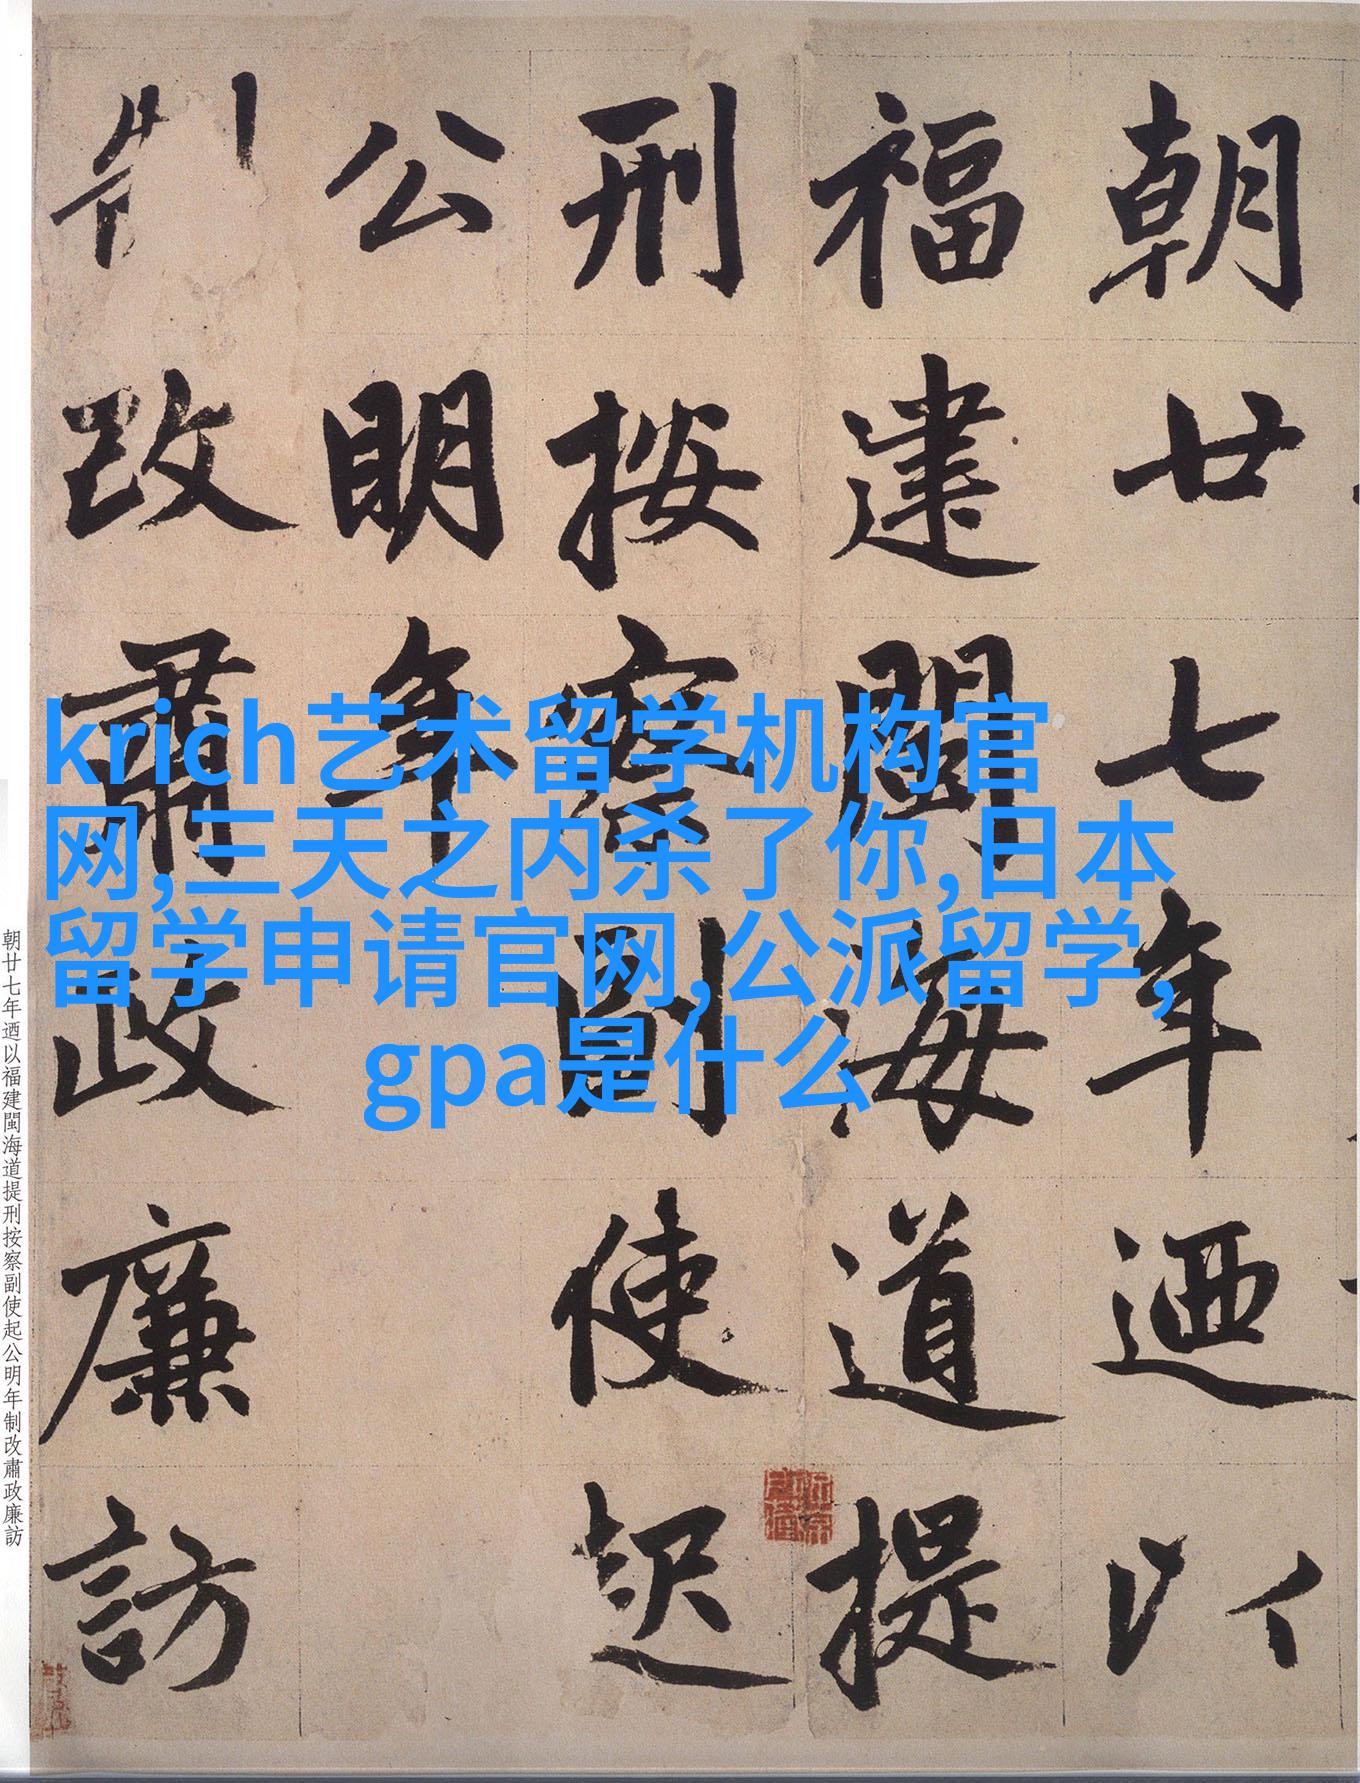 朝廿七年迺以
福建閩海道提
刑按察副使起
公明年
制改肅政廉訪
krich艺术留学机构官
网,三天之内杀了你,日本
留学申请官网,公派留学,
gpa是什么
朝廿七年迺以福建閩海道提刑按察副使起公明年制改肅政廉訪